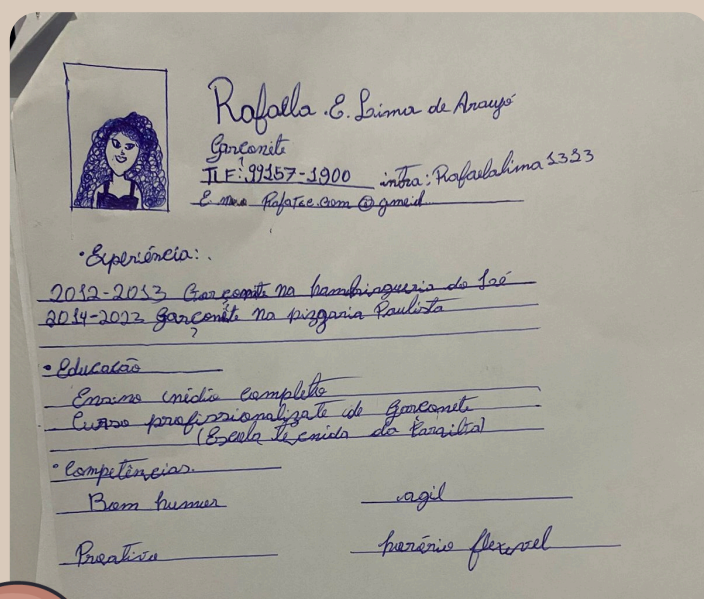 Rafaella .E. Lima de Araujó
Garçonête
TLF: 99157-1900 insta: Rafaelalima1313
E Rafatec.com @ gmeil
• Experiência: .
2012-2013 Garçonête na hambúrgueria do
2014-2023 garçonête na pizzaria Paulista
• Educacão
Ensino médio completo
Curso profissionalizate de garconete
(Escola da
• Competências.
Bom humor agil
Proativa horário flexivel